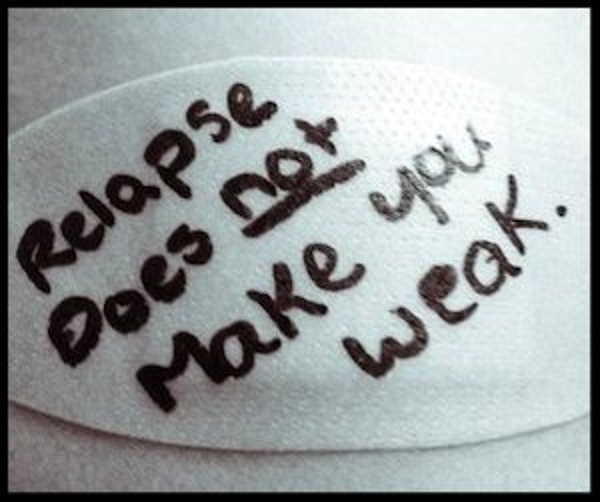 Relapse
Does not
Make you
weak.